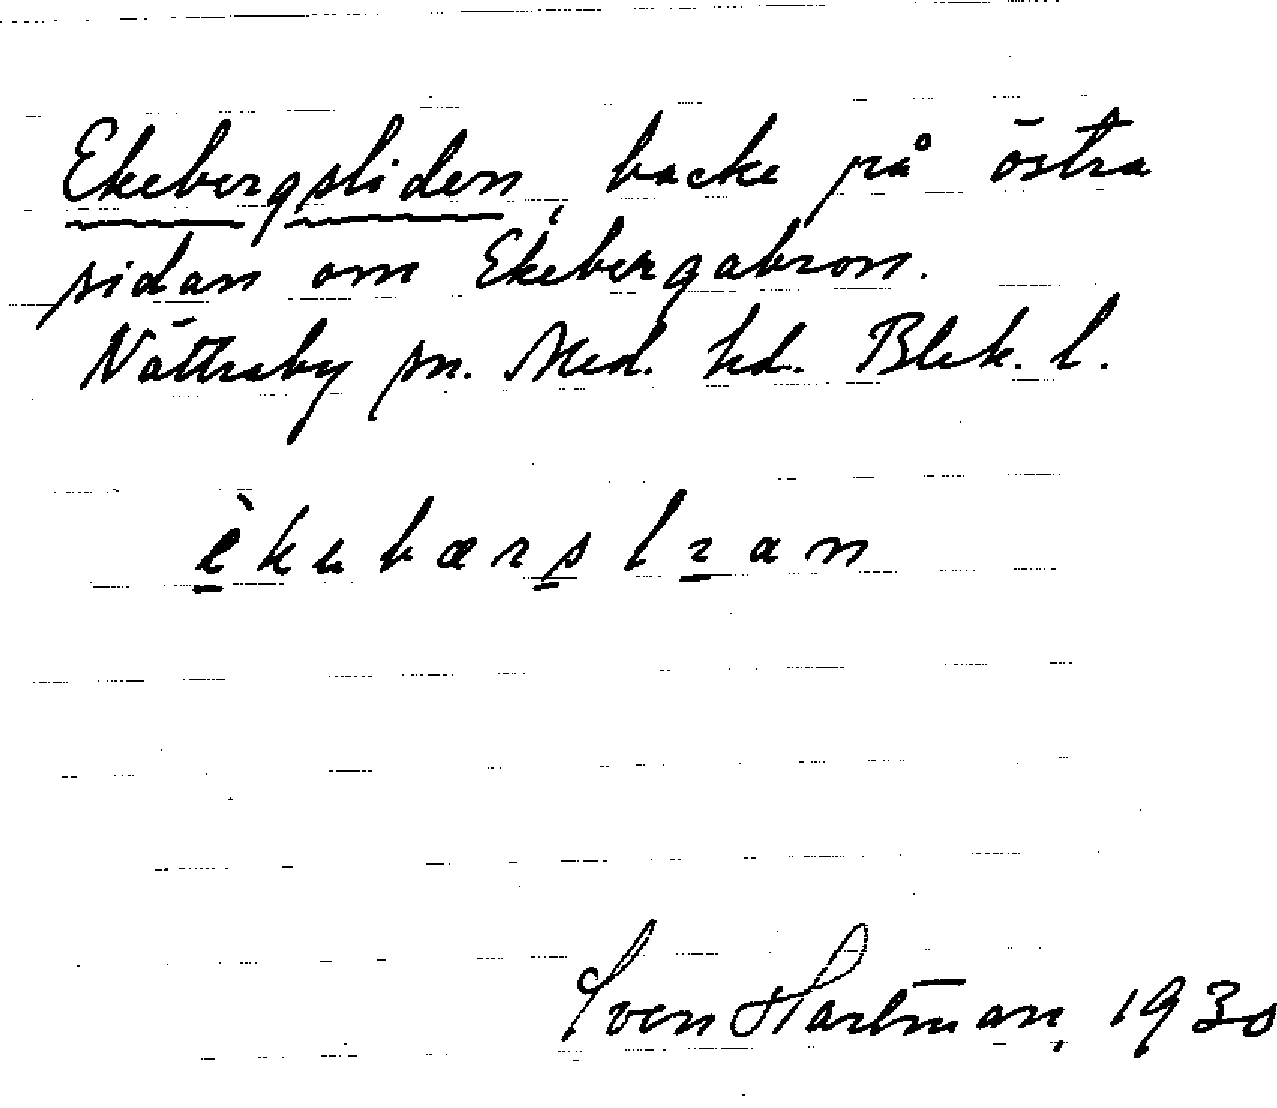 Ekebergsliden, backe på östra
sidan om Ekebergabron.
Nättraby sn. Med. hd. Blek. l.
Sven Hartman, 1930